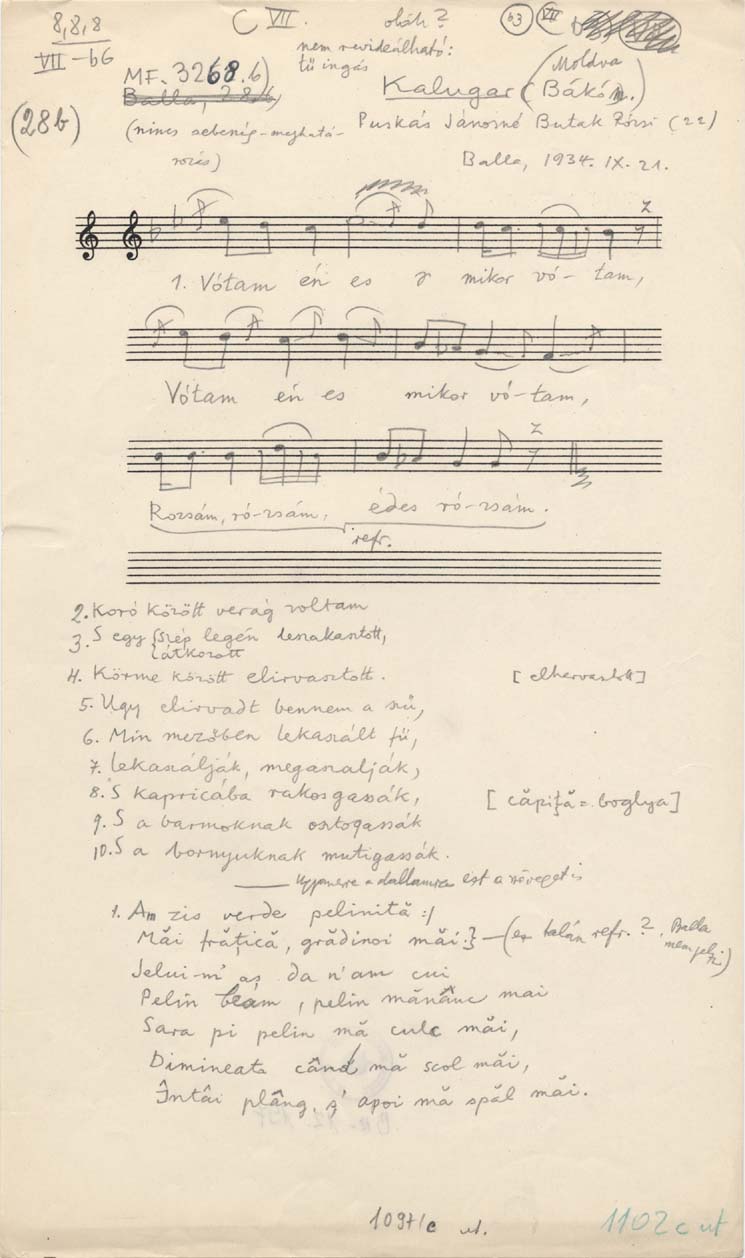 8,8,8
VII -b6
(28b)
C VII.
oláh?
nem revideálható:
tű ingás
63 VII
MF. 3268.b)
Balla, 28b)
(nincs sebesség-meghatá-
rozás)
Kalugar (Moldva
Bákó m.)
Puskás Jánosné Butak Rózsi (22)
Balla, 1934. IX. 21.
1. Vótam én es mikor vó- tam,
Vótam én es mikor vó-tam,
Rozsám, ró-zsám, édes ró-zsám.
refr.
2. Koró között verág voltam
3. S egy {szép legén leszakasztott,
{átkozott
4. Körme között elirvasztott. [elhervasztott]
5. Ugy elirvadt bennem a szű,
6. Min mezőben lekaszált fű,
7. Lekaszálják, megaszalják,
8. S kapricába rakosgassák, [căpiță = boglya]
9. S a barmoknak osztogassák
10. S a bornyuknak mutigassák.
Ugyanerre a dallamra ezt a szöveget is
1. Am zis verde peliniță :/
Măi frățică, grădinoi măi:} — (ez talán refr.? Balla
nem jelzi.)
Jelui-m' aș da n'am cui
Pelin beam, pelin mănânc mai
Sara pi pelin mă culc măi,
Dimineata când mă scol măi,
Întâi plâng, ș' apoi mă spăl măi.
1097/c ut.
1102 c ut